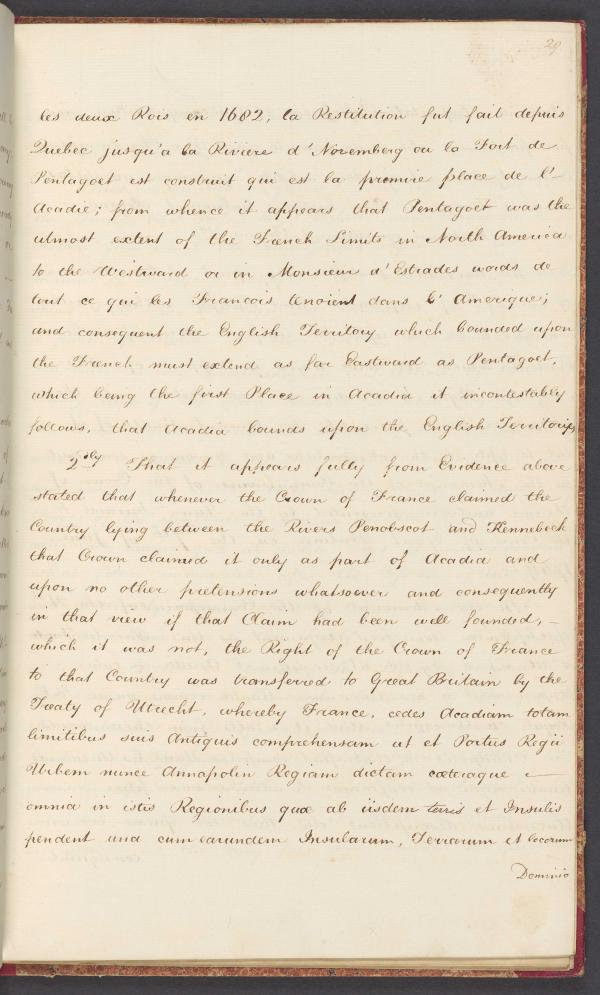 29
les deux Rois en 1682, la Restitution fut fait depuis
Quebec jusqu'a la Riviere d'Noremberg ou la Fort de
Pentagoet est construit qui est la premire place de l'-
Acadie; from whence it appears that Pentagoet was the
utmost extent of the French Limits in North America
to the Westward or in Monsieur d'Estrades words de
tout ce qui les Francois tenoient dans l'Amerique;
and consequent the English Territory which bounded upon
the French must extend as far Eastward as Pentagoet,
which being the first Place in Acadia it incontestably
follows, that Acadia bounds upon the English Territories
2dly That it appears fully from Evidence above
stated that whenever the Crown of France claimed the
Country lying between the Rivers Penobscot and Kennebeck
that Crown claimed it only as part of Acadia and
upon no other pretensions whatsoever and consequently
in that view if that Claim had been well founded, -
which it was not, the Right of the Crown of France
to that Country was transferred to Great Britain by the
Treaty of Utrecht, whereby France, cedes Acadiam totam
limitibus suis Antiquis comprehensam ut et Portus Regii
Urbem nunce Annapolin Regiam dictam cæteraque -
omnia in istis Regionibus quæ ab iisdem terris et Insulis
pendent und cum earundem Insularum, Terrarum et locorum
Dominio